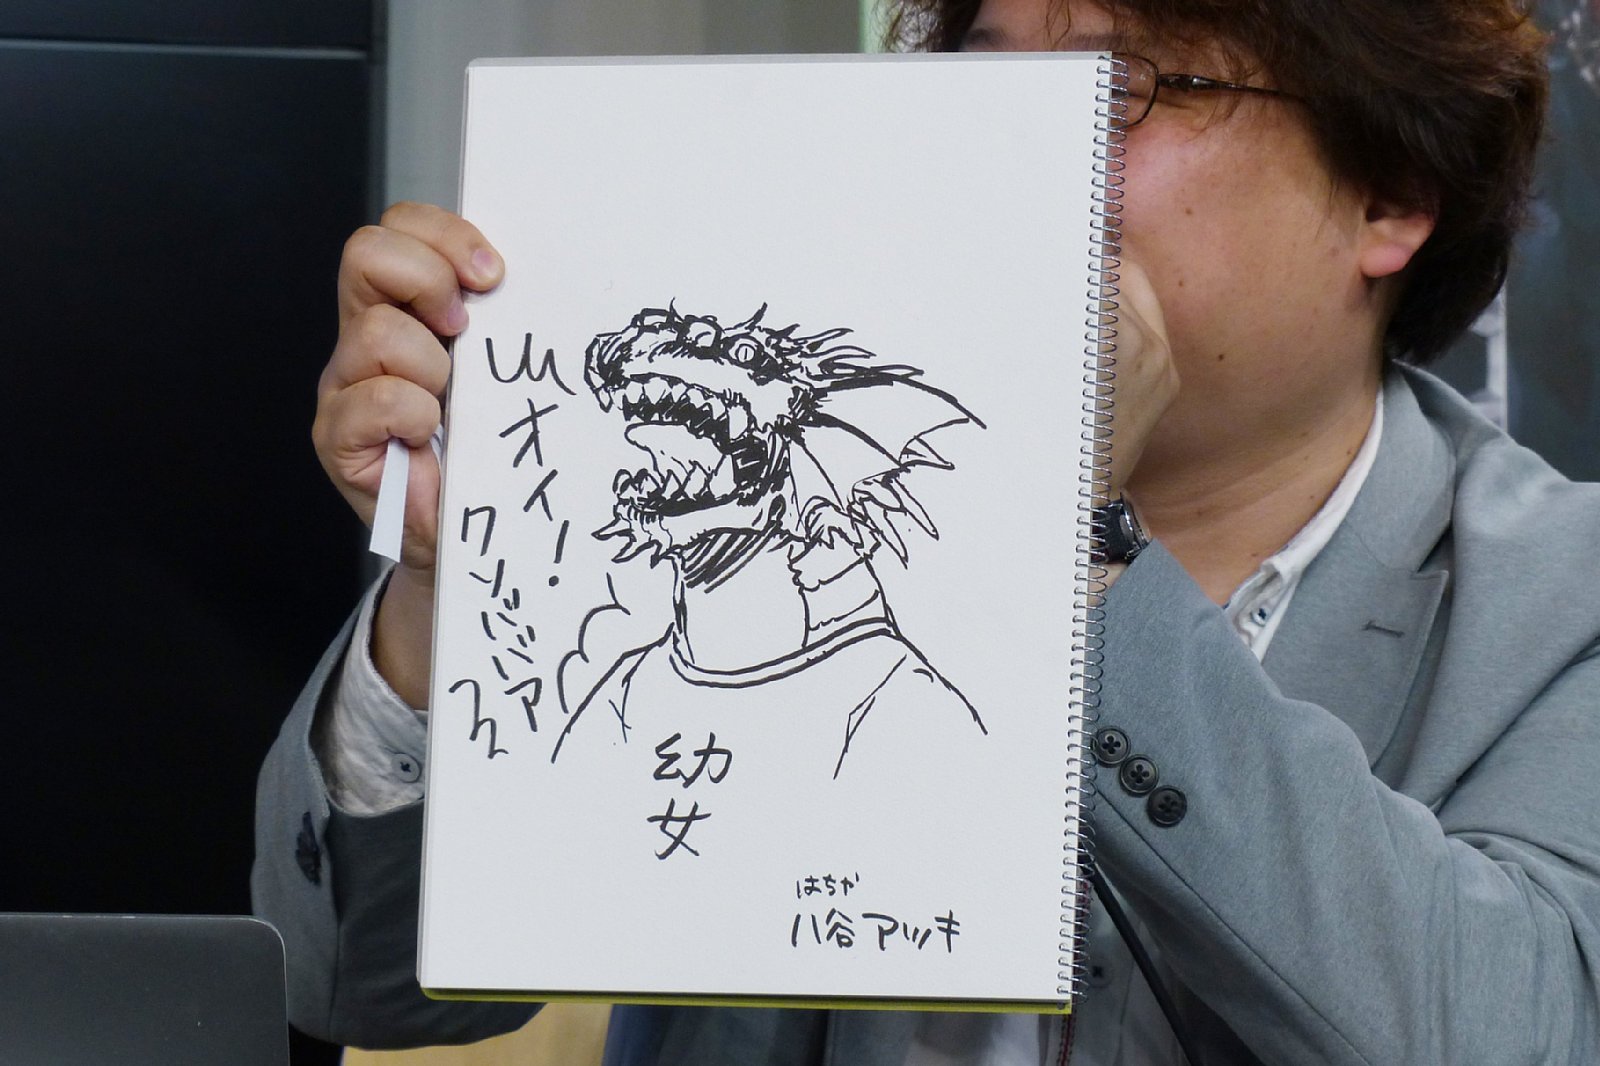 オイ!
クソババア
幼女
はちや
八谷アツキ